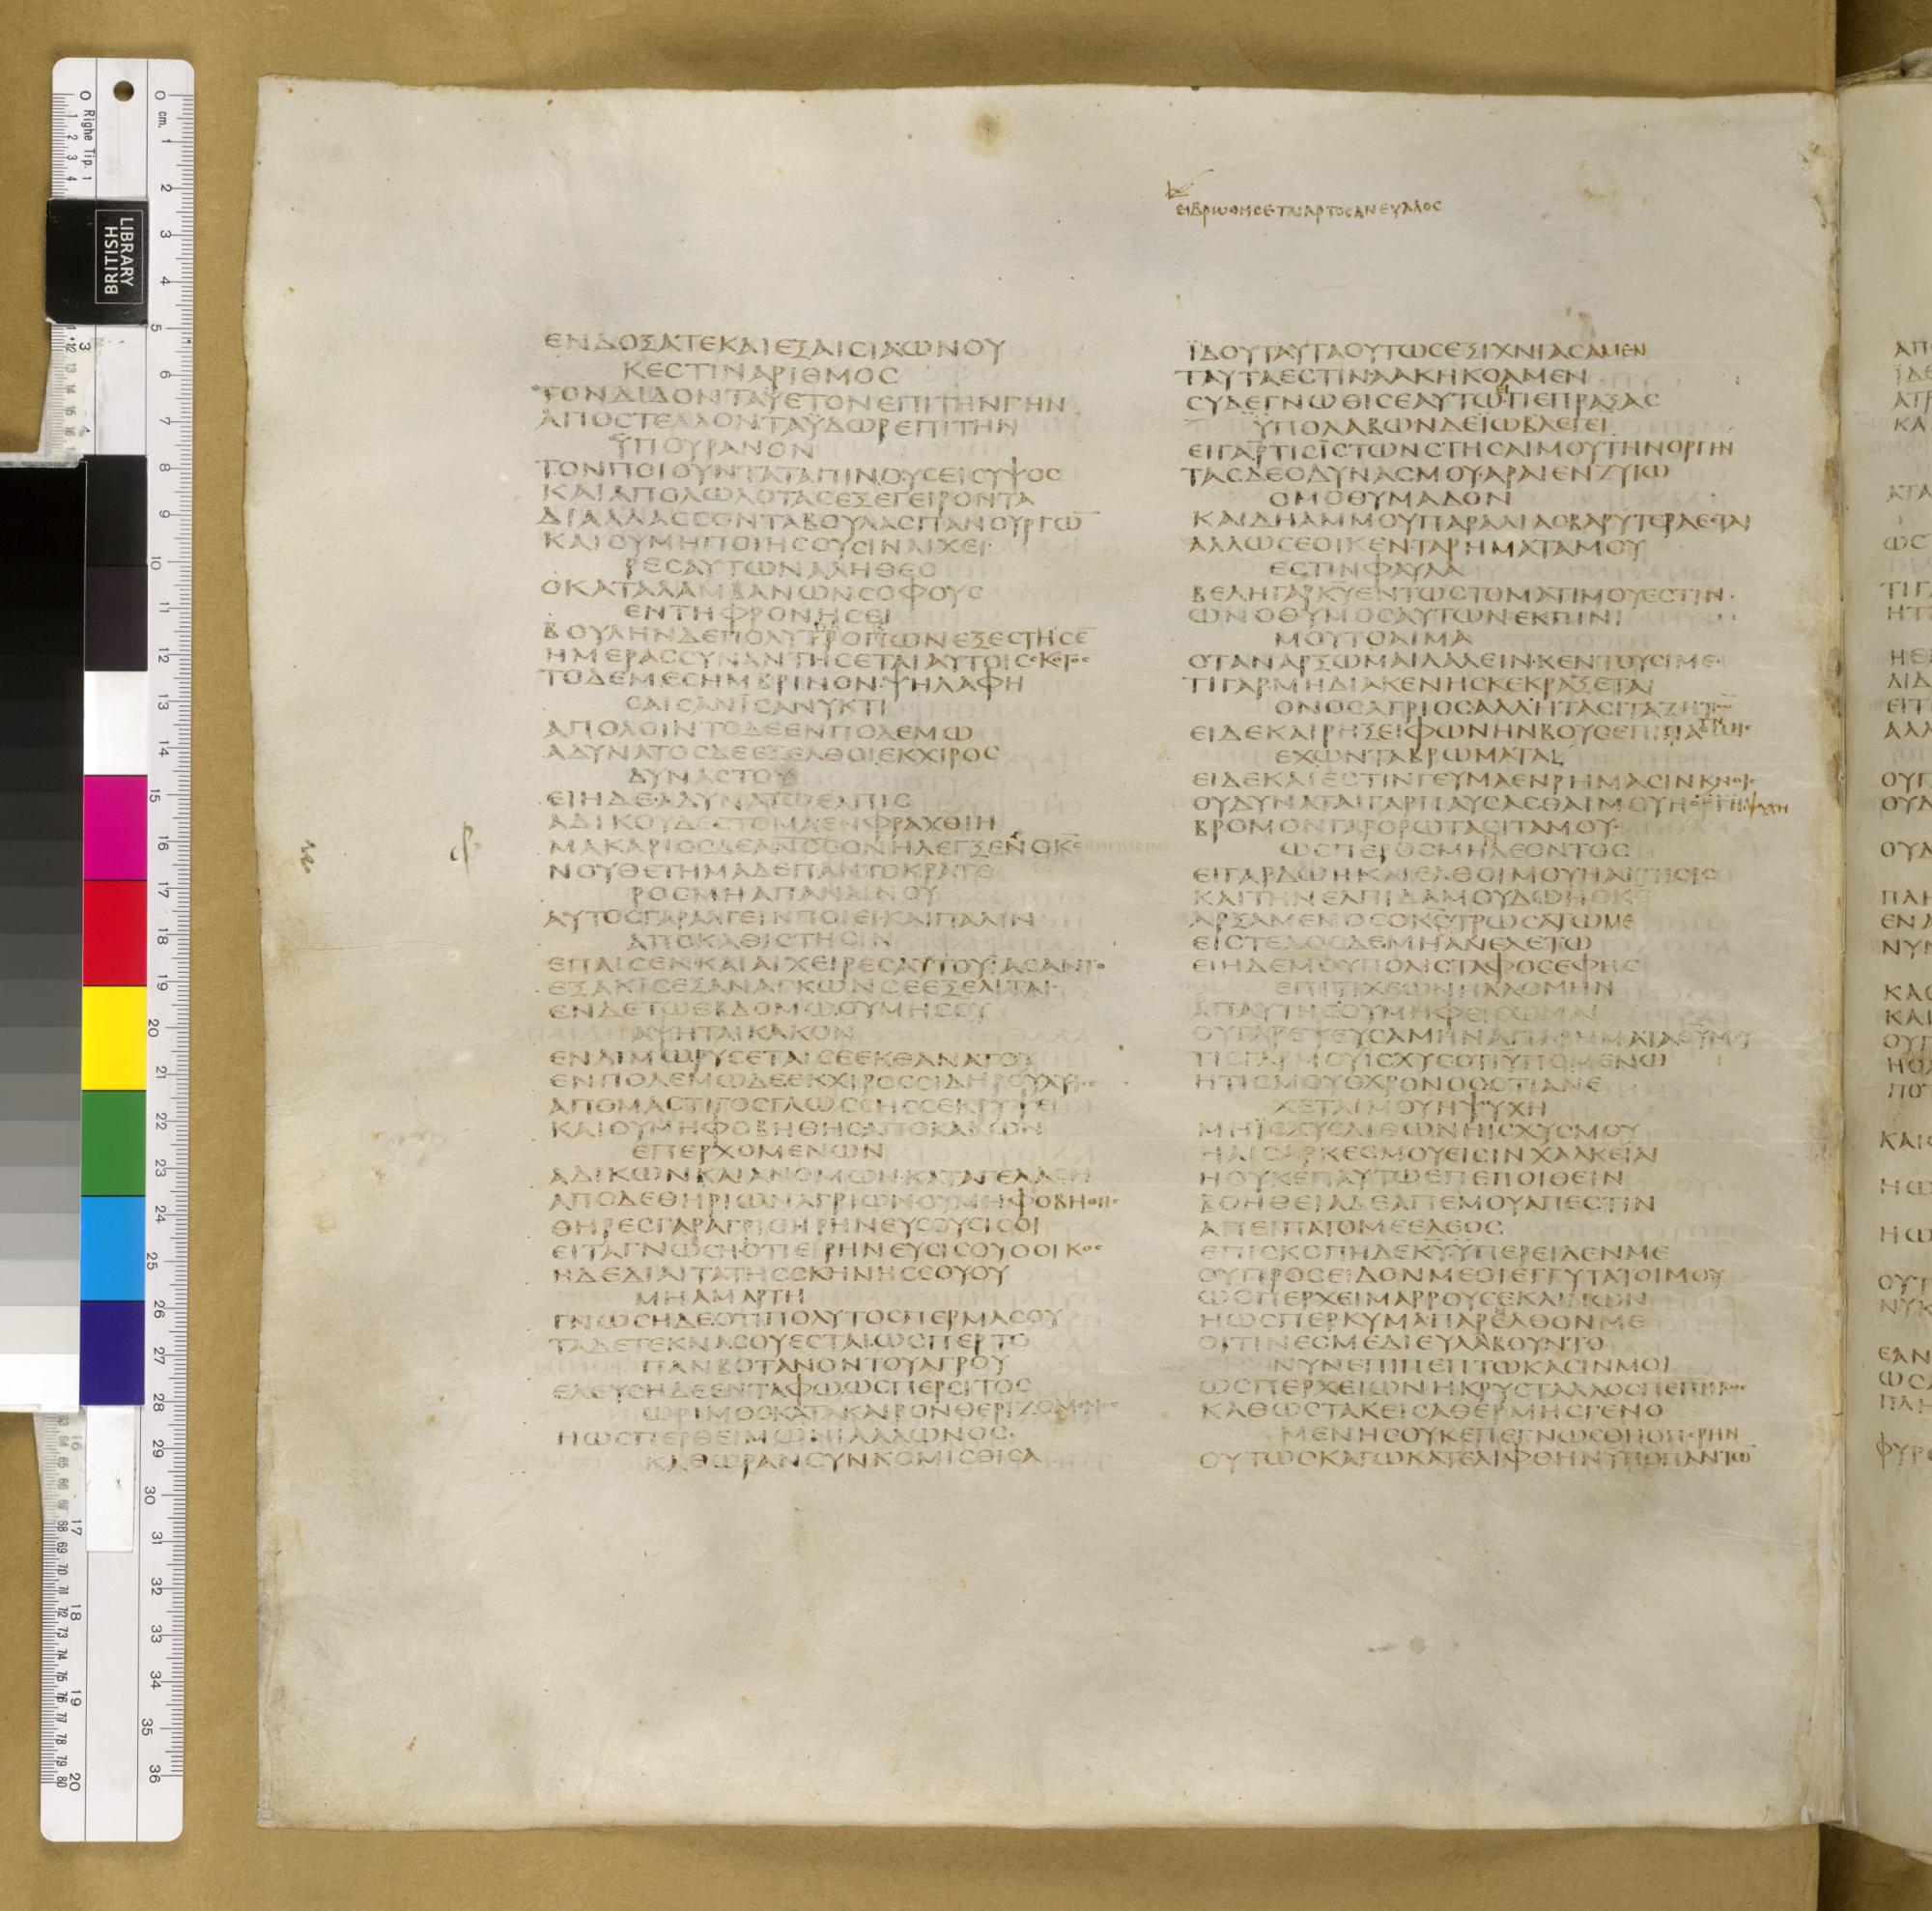 ΕΙΒΡΩΘΗСΕΤΑΙΑΡΤΟСΑΝΕΥΑΛΟС
ΕΝΔΟΞΑΤΕΚΑΙΕΞΑΙСΙΑΩΝΟΥ
ΚΕСΤΙΝΑΡΙΘΜΟС
ΤΟΝΔΙΔΟΝΤΑΥΕΤΟΝΕΠΙΤΗΝΓΗΝ
ΑΠΟСΤΕΛΛΟΝΤΑΫΔΩΡΕΠΙΤΗΝ
ΫΠΟΥΡΑΝΟΝ
ΤΟΝΠΟΙΟΥΝΤΑΤΑΠΙΝΟΥСΕΙСΥΨΟС
ΚΑΙΑΠΟΛΩΛΟΤΑСΕΞΕΓΕΙΡΟΝΤΑ
ΔΙΑΛΛΑССΟΝΤΑΒΟΥΛΑСΠΑΝΟΥΡΓΩ̅
ΚΑΙΟΥΜΗΠΟΙΗСΟΥСΙΝΑΙΧΕΙ
ΡΕСΑΥΤΩΝΑΛΗΘΕС
ΟΚΑΤΑΛΑΜΒΑΝΩΝСΟΦΟΥС
ΕΝΤΗΦΡΟΝΗСΕΙ
ΒΟΥΛΗΝΔΕΠΟΛΥΤΡΟΠΩΝΕΞΕСΤΗСΕ̅
ΗΜΕΡΑССΥΝΑΝΤΗСΕΤΑΙΑΥΤΟΙССΚΟΤΟС
ΤΟΔΕΜΕСΗΜΒΡΙΝΟΝΨΗΛΑΦΗ
СΑΙСΑΝΙСΑΝΥΚΤΙ
ΑΠΟΛΟΙΝΤΟΔΕΕΝΠΟΛΕΜΩ
ΑΔΥΝΑΤΟСΔΕΕΞΕΛΘΟΙΕΚΧΙΡΟС
ΔΥΝΑСΤΟΥ
ΕΙΗΔΕΑΔΥΝΑΤΩΕΛΠΙС
ΑΔΙΚΟΥΔΕСΤΟΜΑΕΝΦΡΑΧΘΙΗ
ΜΑΚΑΡΙΟСΔΕΑΝΟСΟΝΗΛΕΓΞΕΝΟΚС
ΝΟΥΘΕΤΗΜΑΔΕΠΑΝΤΟΚΡΑΤΟ
ΡΟСΜΗΑΠΑΝΑΙΝΟΥ
ΑΥΤΟСΓΑΡΑΛΓΕΙΝΠΟΙΕΙΚΑΙΠΑΛΙΝ
ΑΠΟΚΑΘΙСΤΗСΙΝ
ΕΠΑΙСΕΝΚΑΙΑΙΧΕΙΡΕСΑΥΤΟΥΙΑСΑΝΤΟ
ΕΞΑΚΙСΕΞΑΝΑΓΚΩΝСΕΕΞΕΛΙΤΑΙ
ΕΝΔΕΤΩΕΒΔΟΜΩΟΥΜΗСΟΥ
ΑΨΗΤΑΙΚΑΚΟΝ
ΕΝΛΙΜΩΡΥСΕΤΑΙСΕΕΚΘΑΝΑΤΟΥ
ΕΝΠΟΛΕΜΩΔΕΕΚΧΙΡΟССΙΔΗΡΟΥ
ΑΠΟΜΑСΤΙΓΟСΓΛΩССΗССΕΚΡΥΨΕΙ
ΚΑΙΟΥΜΗΦΟΒΗΘΗСΑΠΟΚΑΚΩΝ
ΕΠΕΡΧΟΜΕΝΩΝ
ΑΔΙΚΩΝΚΑΙΑΝΟΜΩΝΚΑΤΑΓΕΛΑСΗ
ΑΠΟΔΕΘΗΡΙΩΝΑΓΡΙΩΝΟΥΜΗΦΟΒΗΘΗС
ΘΗΡΕСΓΑΡΑΓΡΙΟΙΗΡΗΝΕΥСΟΥСΙСΟΙ
ΕΙΤΑΓΝΩСΗΟΤΙΕΙΡΗΝΕΥСΙСΟΥΟΟΙΚΟС
ΗΔΕΔΙΑΙΤΑΤΗССΚΗΝΗССΟΥΟΥ
ΜΗΑΜΑΡΤΗ
ΓΝΩСΗΔΕΟΤΙΠΟΛΥΤΟСΠΕΡΜΑСΟΥ
ΤΑΔΕΤΕΚΝΑСΟΥΕСΤΑΙΩСΠΕΡΤΟ
ΠΑΝΒΟΤΑΝΟΝΤΟΥΑΓΡΟΥ
ΕΛΕΥСΗΔΕΕΝΤΑΦΩΩСΠΕΡСΙΤΟС
ΩΡΙΜΟСΚΑΤΑΚΑΙΡΟΝΘΕΡΙΖΟΜΕΝΟС
ΗΩСΠΕΡΘΕΙΜΩΝΙΑΑΛΩΝΟС
ΚΑΘΩΡΑΝСΥΝΚΟΜΙСΘΙСΑ
ΪΔΟΥΤΑΥΤΑΟΥΤΩСΕΞΙΧΝΙΑСΑΜΕΝ
ΤΑΥΤΑΕСΤΙΝΑΑΚΗΚΟΑΜΕΝ
СΥΔΕΓΝΩΘΙСΕΑΥΤΩΤΙΕΠΡΑΞΑС
ΫΠΟΛΑΒΩΝΔΕΪΩΒΛΕΓΕΙ
ΕΙΓΑΡΤΙСΪСΤΩΝСΤΗСΑΙΜΟΥΤΗΝΟΡΓΗΝ
ΤΑСΔΕΟΔΥΝΑСΜΟΥΑΡΑΙΕΝΖΥΓΩ
ΟΜΟΘΥΜΑΔΟΝ
ΚΑΙΔΗΑΜΜΟΥΠΑΡΑΛΙΑСΒΑΡΥΤΕΡΑΕСΤΑΙ
ΑΛΛΩСΕΟΙΚΕΝΤΑΡΗΜΑΤΑΜΟΥ
ΕСΤΙΝΦΑΥΛΑ
ΒΕΛΗΓΑΡΚ̅Υ̅ΕΝΤΩСΤΟΜΑΤΙΜΟΥΕСΤΙΝ
ΩΝΟΘΥΜΟСΑΥΤΩΝΕΚΠΙΝΙ
ΜΟΥΤΟΑΙΜΑ
ΟΤΑΝΑΡΞΩΜΑΙΛΑΛΕΙΝΚΕΝΤΟΥСΙΜΕ
ΤΙΓΑΡΜΗΔΙΑΚΕΝΗСΚΕΚΡΑΞΕΤΑΙ
ΟΝΟСΑΓΡΙΟСΑΛΛΗΤΑСΙΤΑΖΗΤΩΝ
ΕΙΔΕΚΑΙΡΗΞΕΙΦΩΝΗΝΒΟΥСΕΠΙΦΑΤΝΗС
ΕΧΩΝΤΑΒΡΩΜΑΤΑ
ΕΙΔΕΚΑΙΕСΤΙΝΓΕΥΜΑΕΝΡΗΜΑСΙΝΚΕΝΟΙС
ΟΥΔΥΝΑΤΑΙΓΑΡΠΑΥСΑСΘΑΙΜΟΥΗΟΡΓΗ
ΒΡΟΜΟΝΓΑΡΟΡΩΤΑСΙΤΑΜΟΥ
ΩСΠΕΡΟСΜΗΛΕΟΝΤΟС
ΕΙΓΑΡΔΩΗΚΑΙΕΛΘΟΙΜΟΥΗΑΙΤΗСΙС
ΚΑΙΤΗΝΕΛΠΙΔΑΜΟΥΔΩΗΟΚС
ΑΡΞΑΜΕΝΟСΟΚСΤΡΩСΑΤΩΜΕ
ΕΙСΤΕΛΟСΔΕΜΗΑΝΕΛΕΤΩ
ΕΙΗΔΕΜΟΥΠΟΛΙСΤΑΦΟСΕΦΗС
ΕΠΙΤΙΧΕΩΝΗΛΛΟΜΗΝ
ΕΠΑΥΤΗСΟΥΜΗΦΕΙСΩΜΑΙ
ΟΥΓΑΡΕΨΕΥСΑΜΗΝΑΓΙΑΡΗΜΑΤΑΘΥΜΟΥ
ΤΙСΓΑΡΜΟΥΙСΧΥСΟΤΙΥΠΟΜΕΝΩ
ΗΤΙСΜΟΥΟΧΡΟΝΟСΟΤΙΑΝΕ
ΧΕΤΑΙΜΟΥΗΨΥΧΗ
ΜΗΪСΧΥСΛΙΘΩΝΗΙСΧΥСΜΟΥ
ΗΑΙСΑΡΚΕСΜΟΥΕΙСΙΝΧΑΛΚΕΙΑΙ
ΗΟΥΚΕΠΑΥΤΩΕΠΕΠΟΙΘΕΙΝ
ΒΟΗΘΕΙΑΔΕΑΠΕΜΟΥΑΠΕСΤΙΝ
ΑΠΕΙΠΑΤΟΜΕΕΛΕΟС
ΕΠΙСΚΟΠΗΔΕΚ̅Υ̅ΫΠΕΡΕΙΔΕΝΜΕ
ΟΥΠΡΟСΕΙΔΟΝΜΕΟΙΕΓΓΥΤΑΤΟΙΜΟΥ
ΩСΠΕΡΧΕΙΜΑΡΡΟΥСΕΚΛΙΠΩΝ
ΗΩСΠΕΡΚΥΜΑΠΑΡΕΛΘΟΝΜΕ
ΟΙΤΙΝΕСΜΕΔΙΕΥΛΑΒΟΥΝΤΟ
ΝΥΝΕΠΙΠΕΠΤΩΚΑСΙΝΜΟΙ
ΩСΠΕΡΧΕΙΩΝΗΚΡΥСΤΑΛΛΟСΠΕΠΗΓΩС
ΚΑΘΩСΤΑΚΕΙСΑΘΕΡΜΗСΓΕΝΟ
ΜΕΝΗСΟΥΚΕΠΕΓΝΩСΘΗΟΠΕΡΗΝ
ΟΥΤΩСΚΑΓΩΚΑΤΕΛΙΦΘΗΝΥΠΟΠΑΝΤΩ̅
LIBRARY
BRITISH